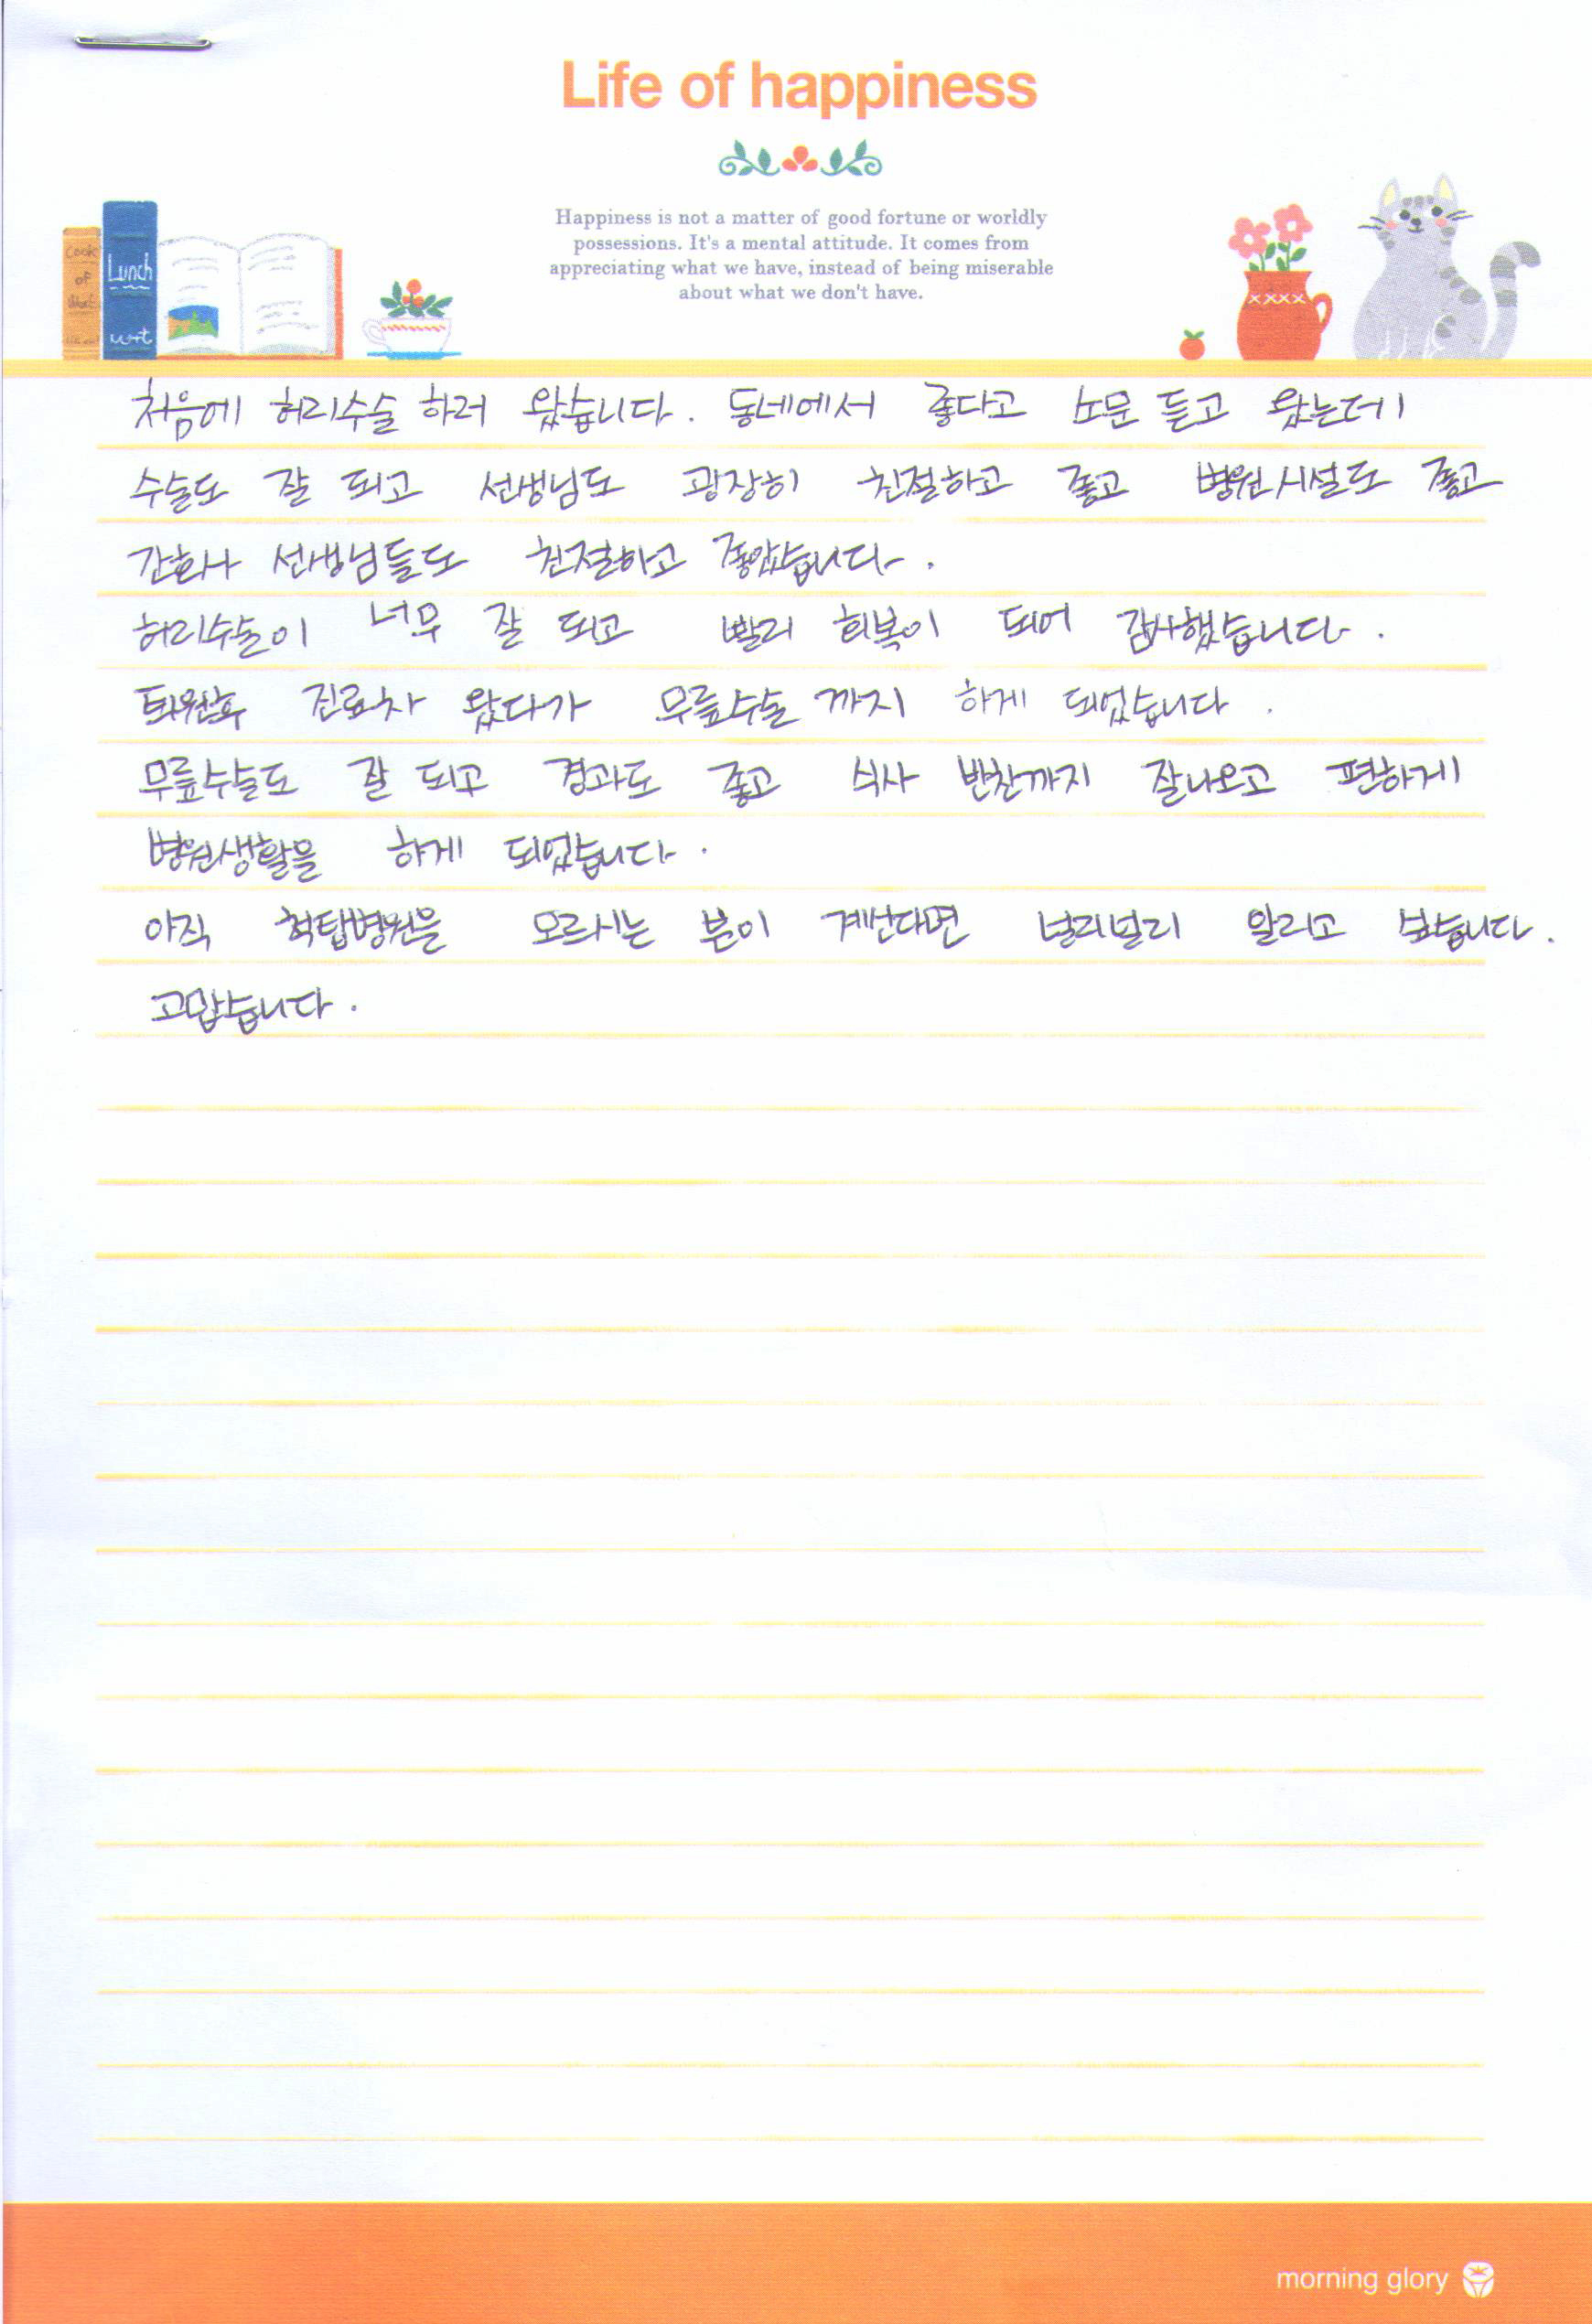 Life of happiness
Happiness is not a matter of good fortune or worldly
possessions. It's a mental attitude. It comes from
appreciating what we have, instead of being miserable
about what we don't have.
Cook
of
Lunch
처음에 허리수술 하러 왔습니다. 동네에서 좋다고 소문 듣고 왔는데
수술도 잘 되고 선생님도 광장히 친절하고 좋고 병원시설도 좋고
간호사 선생님들도 친절하고 좋았습니다.
허리수술이 너무 잘 되고 빨리 회복이 되어 감사했습니다.
퇴원후 진료차 왔다가 무릎수술까지 하게 되었습니다.
무릎수술도 잘 되고 경과도 좋고 식사 반찬까지 잘나오고 편하게
병원생활을 하게 되었습니다.
아직 척탑병원을 모르시는 분이 계신다면 널리널리 알리고 싶습니다.
고맙습니다.
morning glory